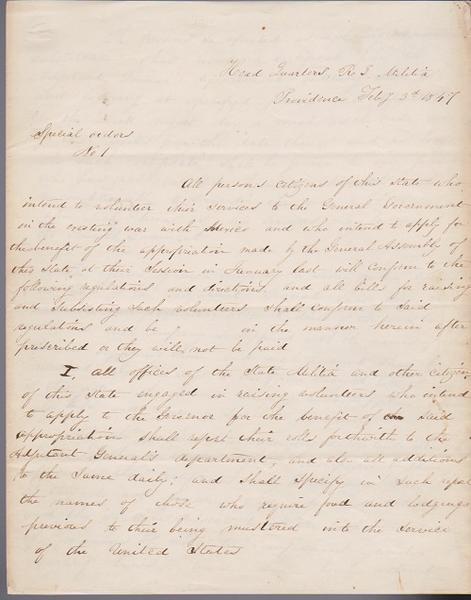 Head Quarters, R. I. Militia
Providence Feby 3d 1847
Special orders
No 1
All persons citizens of this State who
intend to volunteer their services to the General Government
in the existing war with Mexico and who intend to apply for
the benefit of the appropriation made by the General Assembly of
this State at their Session in January last will conform to the
following regulations and directions, and all bills for raising
and Subsisting such volunteers shall conform to said
regulations and be in the manner herein after
prescribed or they will not be paid
I, All officers of the State Militia and other citizens
of this State engaged in raising volunteers who intend
to apply to the Governor for the benefit of said
appropriation shall report their rolls forthwith to the
Adjutant General's department, and also all additions
to the same daily; and shall specify in such report
the names of those who require food and lodgings
previous to their being mustered into the service
of the United States